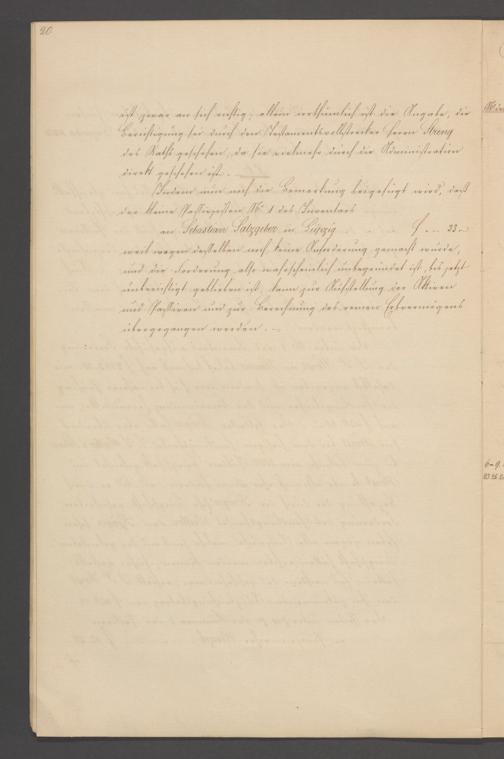 20
ist zwar an sich richtig; allein irrthümlich ist die Angabe, die
Berichtigung sei durch den Testamentsvollstrecker Herrn Streng
des Raths geschehen, da sie vielmehr durch die Administration
direkt geschehen ist.
Indem nun noch die Bemerkung beigefügt wird, daß
der kleine Passivposten № 1 des Inventars
an Sebastian Salzgeber in Leipzig . . . f. .. 33 ..
weil wegen desselben noch keine Anforderung gemacht wurde,
und die Forderung also wahrscheinlich unbegründet ist, bis jetzt
unberichtigt geblieben ist, kann zur Aufstellung der Aktiven
und Passiven und zur Berechnung des reinen Erbvermögens
übergegangen werden. –